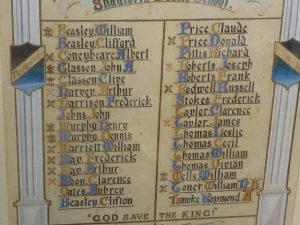 Beasley, William
Beasley, Clifford
Coneybeare, Albert
Glassen, John A.
Glassen, Clive
Harvey, Arthur
Harrison, Frederick
Johns, John
Murphy, Henry
Murphy, Dennis
Marriott, William
May, Frederick
May, Arthur
Moon, Clarence
Oates, Aubrey
Beasley, Clifton
Price, Claude
Price, Donald
Pitt, Richard
Roberts, Joseph
Roberts, Frank
Rodwell, Russell
Stokes, Frederick
Taylor, Clarence
Taylor, James
Thomas, Leslie
Thomas, Cecil
Thomas, William
Thomas, Vivian
Wells, William
Toner, William
Hawke, Raymond A
"GOD SAVE THE KING!"